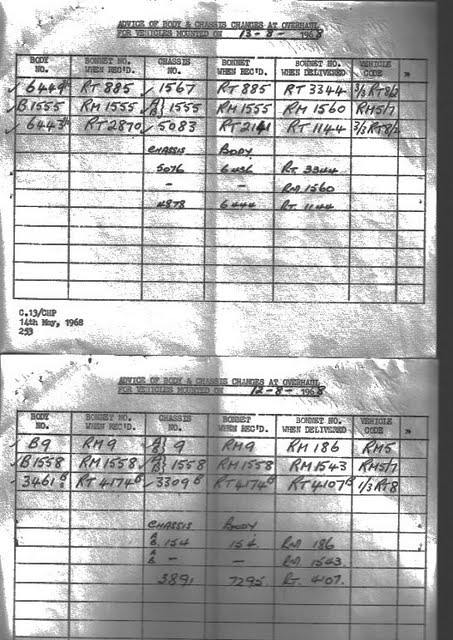 ADVICE OF BODY & CHASSIS CHANGES AT OVERHAUL
FOR VEHICLES MOUNTED ON 13-8- 1968
BODY NO. BONNET NO. WHEN REC'D. CHASSIS NO. BONNET WHEN REC'D. BONNET NO. WHEN DELIVERED VEHICLE CODE "
✓ RT 885 ✓ 1567 RT 885 RT 3344 3/3 RT8/2
✓ B1555 RM 1555 ✓ A B } 1555 RM 1555 RM 1560 RM5/7
✓ RT2870 ✓ 5083 RT 1144 3/3 RT8/2
CHASSIS BODY
5076 6436 RT 3344
- - RM 1560
4878 6444 RT 1144
C.13/CHP
14th May, 1968
253
ADVICE OF BODY & CHASSIS CHANGES AT OVERHAUL
FOR VEHICLES MOUNTED ON 12-8- 1968
BODY NO. BONNET NO. WHEN REC'D. CHASSIS NO. BONNET WHEN REC'D. BONNET NO. WHEN DELIVERED VEHICLE CODE "
✓ B9 RM9 ✓ A B } 9 RM9 RM 186 RM5
✓ B1558 RM 1558 ✓ A B } 1558 RM 1558 RM 1543 RM5/7
✓ 3461 RT 4174 ✓ 3309 RT 4174 RT 4107 1/3 RT8
CHASSIS BODY
A B 154 154 RM 186
A B - - RM 1543
3891 7295 RT 4107